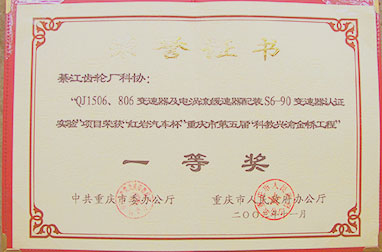 荣誉证书
綦江齿轮厂科协：
“QJ1506、806变速器及电涡流缓速器配装S6-90变速器认证
实验”项目荣获“红岩汽车杯”重庆市第五届“科教兴渝金桥工程”
一等奖
中共重庆市委办公厅 重庆市人民政府办公厅